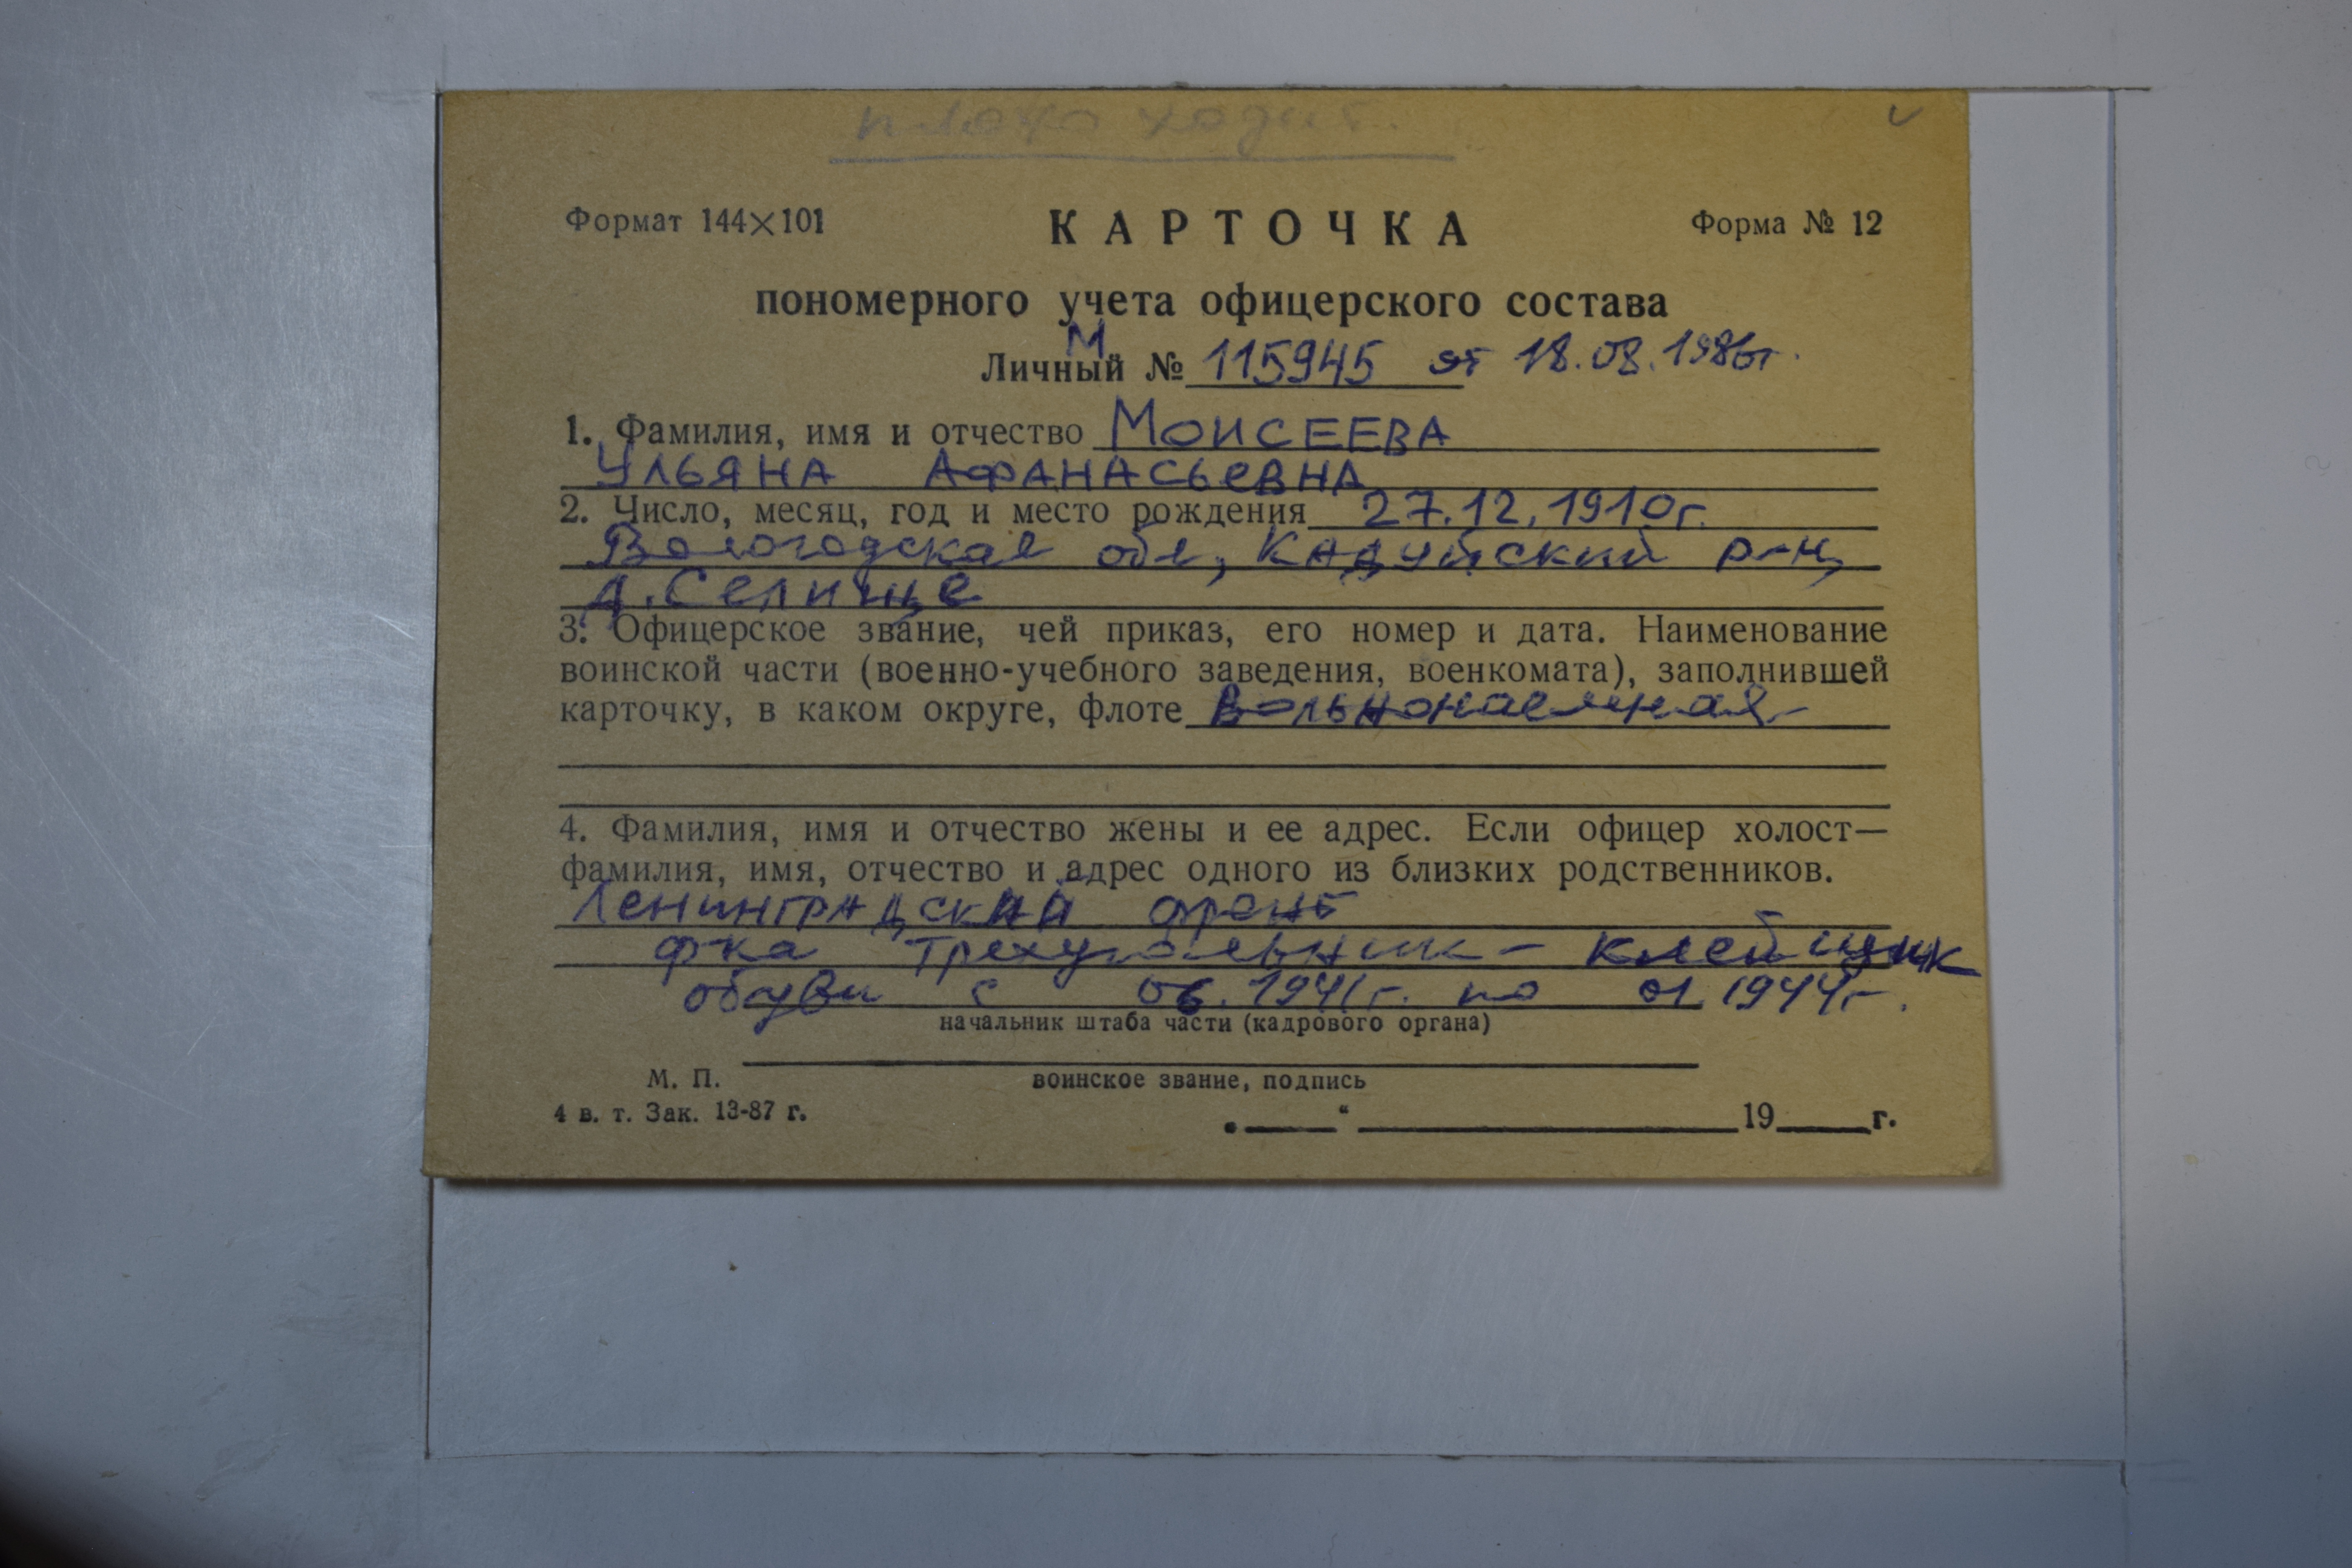 плохо ходит.
Формат 144×101 КАРТОЧКА Форма № 12
пономерного учета офицерского состава
М
Личный № 115945 от 18.08.1986г.
1. Фамилия, имя и отчество МОИСЕЕВА
УЛЬЯНА АФАНАСЬЕВНА
2. Число, месяц, год и место рождения 27.12.1910г.
Вологодская обл, Кадуйский р-н,
д. Селище
3. Офицерское звание, чей приказ, его номер и дата. Наименование
воинской части (военно-учебного заведения, военкомата), заполнившей
карточку, в каком округе, флоте Вольнонаемная
4. Фамилия, имя и отчество жены и ее адрес. Если офицер холост—
фамилия, имя, отчество и адрес одного из близких родственников.
Ленинградский фронт
ф-ка Треугольник - клейщик
обуви с 06.1941г. по 01.1944г.
начальник штаба части (кадрового органа)
М. П. воинское звание, подпись
4 в. т. Зак. 13-87 г.
„ “ 19 г.